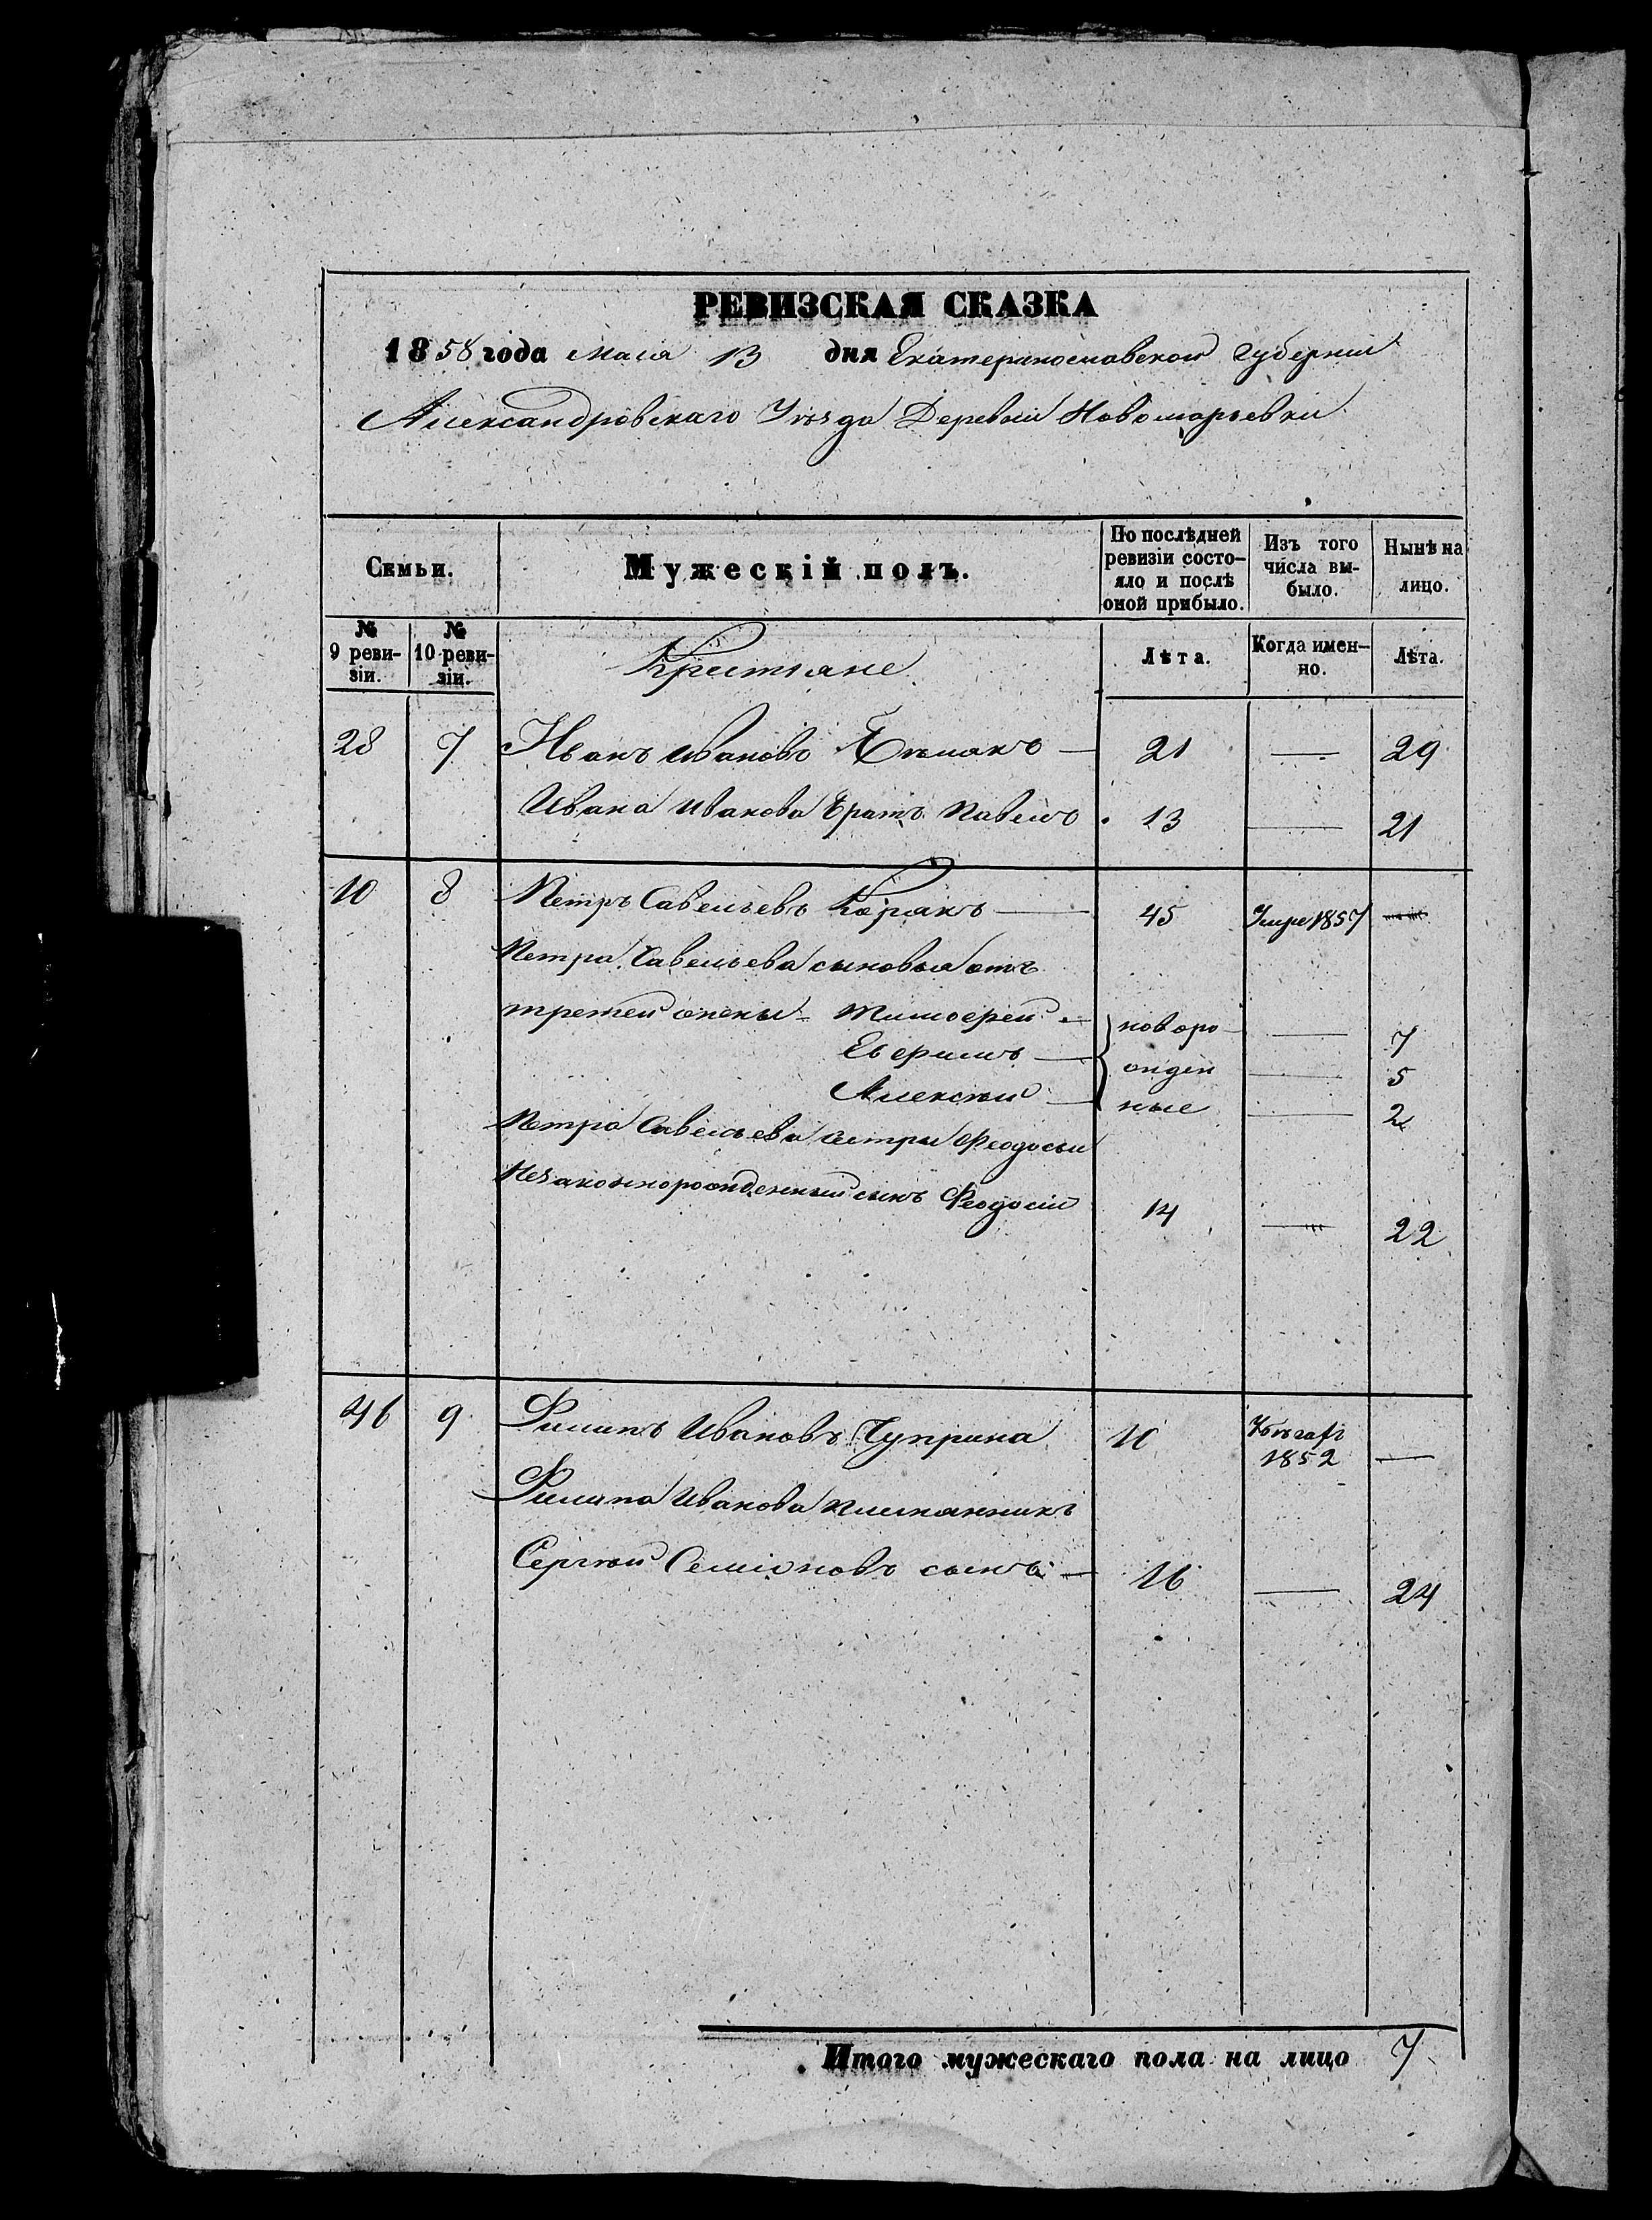 РЕВИЗСКАЯ СКАЗКА
1858 года Мая 13 дня Екатеринославской Губернии
Александровскаго Уѣзда Деревни Новомарьевки
Семьи.
Мужескій полъ.
По послѣдней ревизіи состо-
яло и послѣ
оной прибыло.
Изъ того
числа вы-
было.
Нынѣ на
лицо.
№
9 реви-
зіи.
№
10 реви-
зіи.
Крестяне
Лѣта.
Когда имен-
но.
Лѣта.
28 7 Иванъ Ивановъ — 21 — 29
Ивана Иванова братъ Павелъ 13 — 21
10 8 Петръ Савельевъ — 45 Умре 1857 —
Петра Савельева сыновья отъ
третей жены - Тимофей — новоро — 7
Ефимъ — жден — 5
Алексѣй — ные — 2
Петра Савельева сестры Феодосьи
Незаконнорожденный сынъ Феодосій 14 — 22
46 9 Филипъ Ивановъ Чуприна 10 1852 —
Филипа Иванова племянникъ
Сергѣй Семіоновъ сынъ — 16 — 24
Итого мужескаго пола на лицо 7